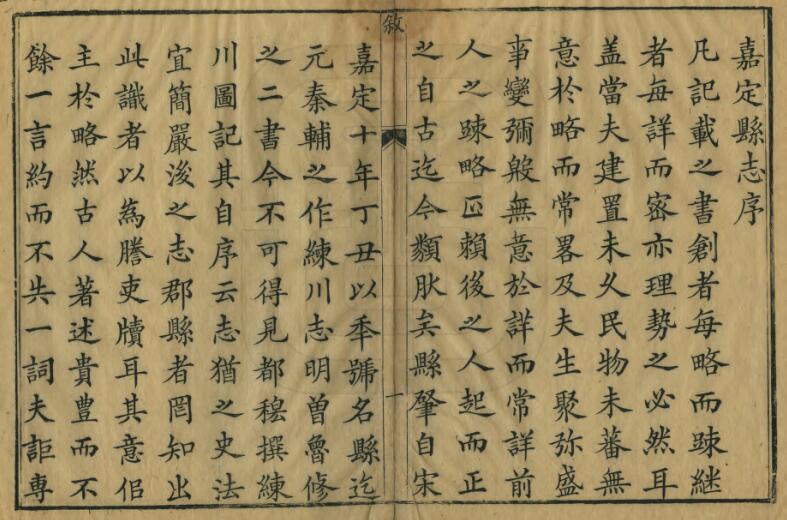 嘉定縣志序
凡記載之書創者每略而踈継
者每詳而宻亦理勢之必然耳
盖當夫建置未乆民物未蕃無
意於略而常畧及夫生聚弥盛
事變彌㲃無意於詳而常詳前
人之踈略𠙺賴後之人起而正
之自古迄今𩔖肰矣縣肇自宋
敘
一
嘉定十年丁丑以秊號名縣迄
元秦輔之作練川志明曽魯修
之二書今不可得見都穆撰練
川圖記其自序云志猶之史法
宜簡嚴後之志郡縣者罔知出
此識者以為謄吏牘耳其意佀
主於略然古人著述貴豊而不
餘一言約而不失一詞夫詎専